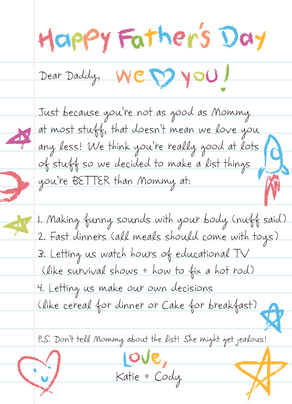 Happy Father's Day
Dear Daddy, we you!
Just because you're not as good as Mommy
at most stuff, that doesn't mean we love you
any less! We think you're really good at lots
of stuff so we decided to make a list things
you're BETTER than Mommy at:
1. Making funny sounds with your body (nuff said)
2. Fast dinners (all meals should come with toys)
3. Letting us watch hours of educational TV
(like survival shows + how to fix a hot rod)
4. Letting us make our own decisions
(like cereal for dinner or Cake for breakfast)
P.S. Don't tell Mommy about the list! She might get jealous!
Love,
Katie + Cody